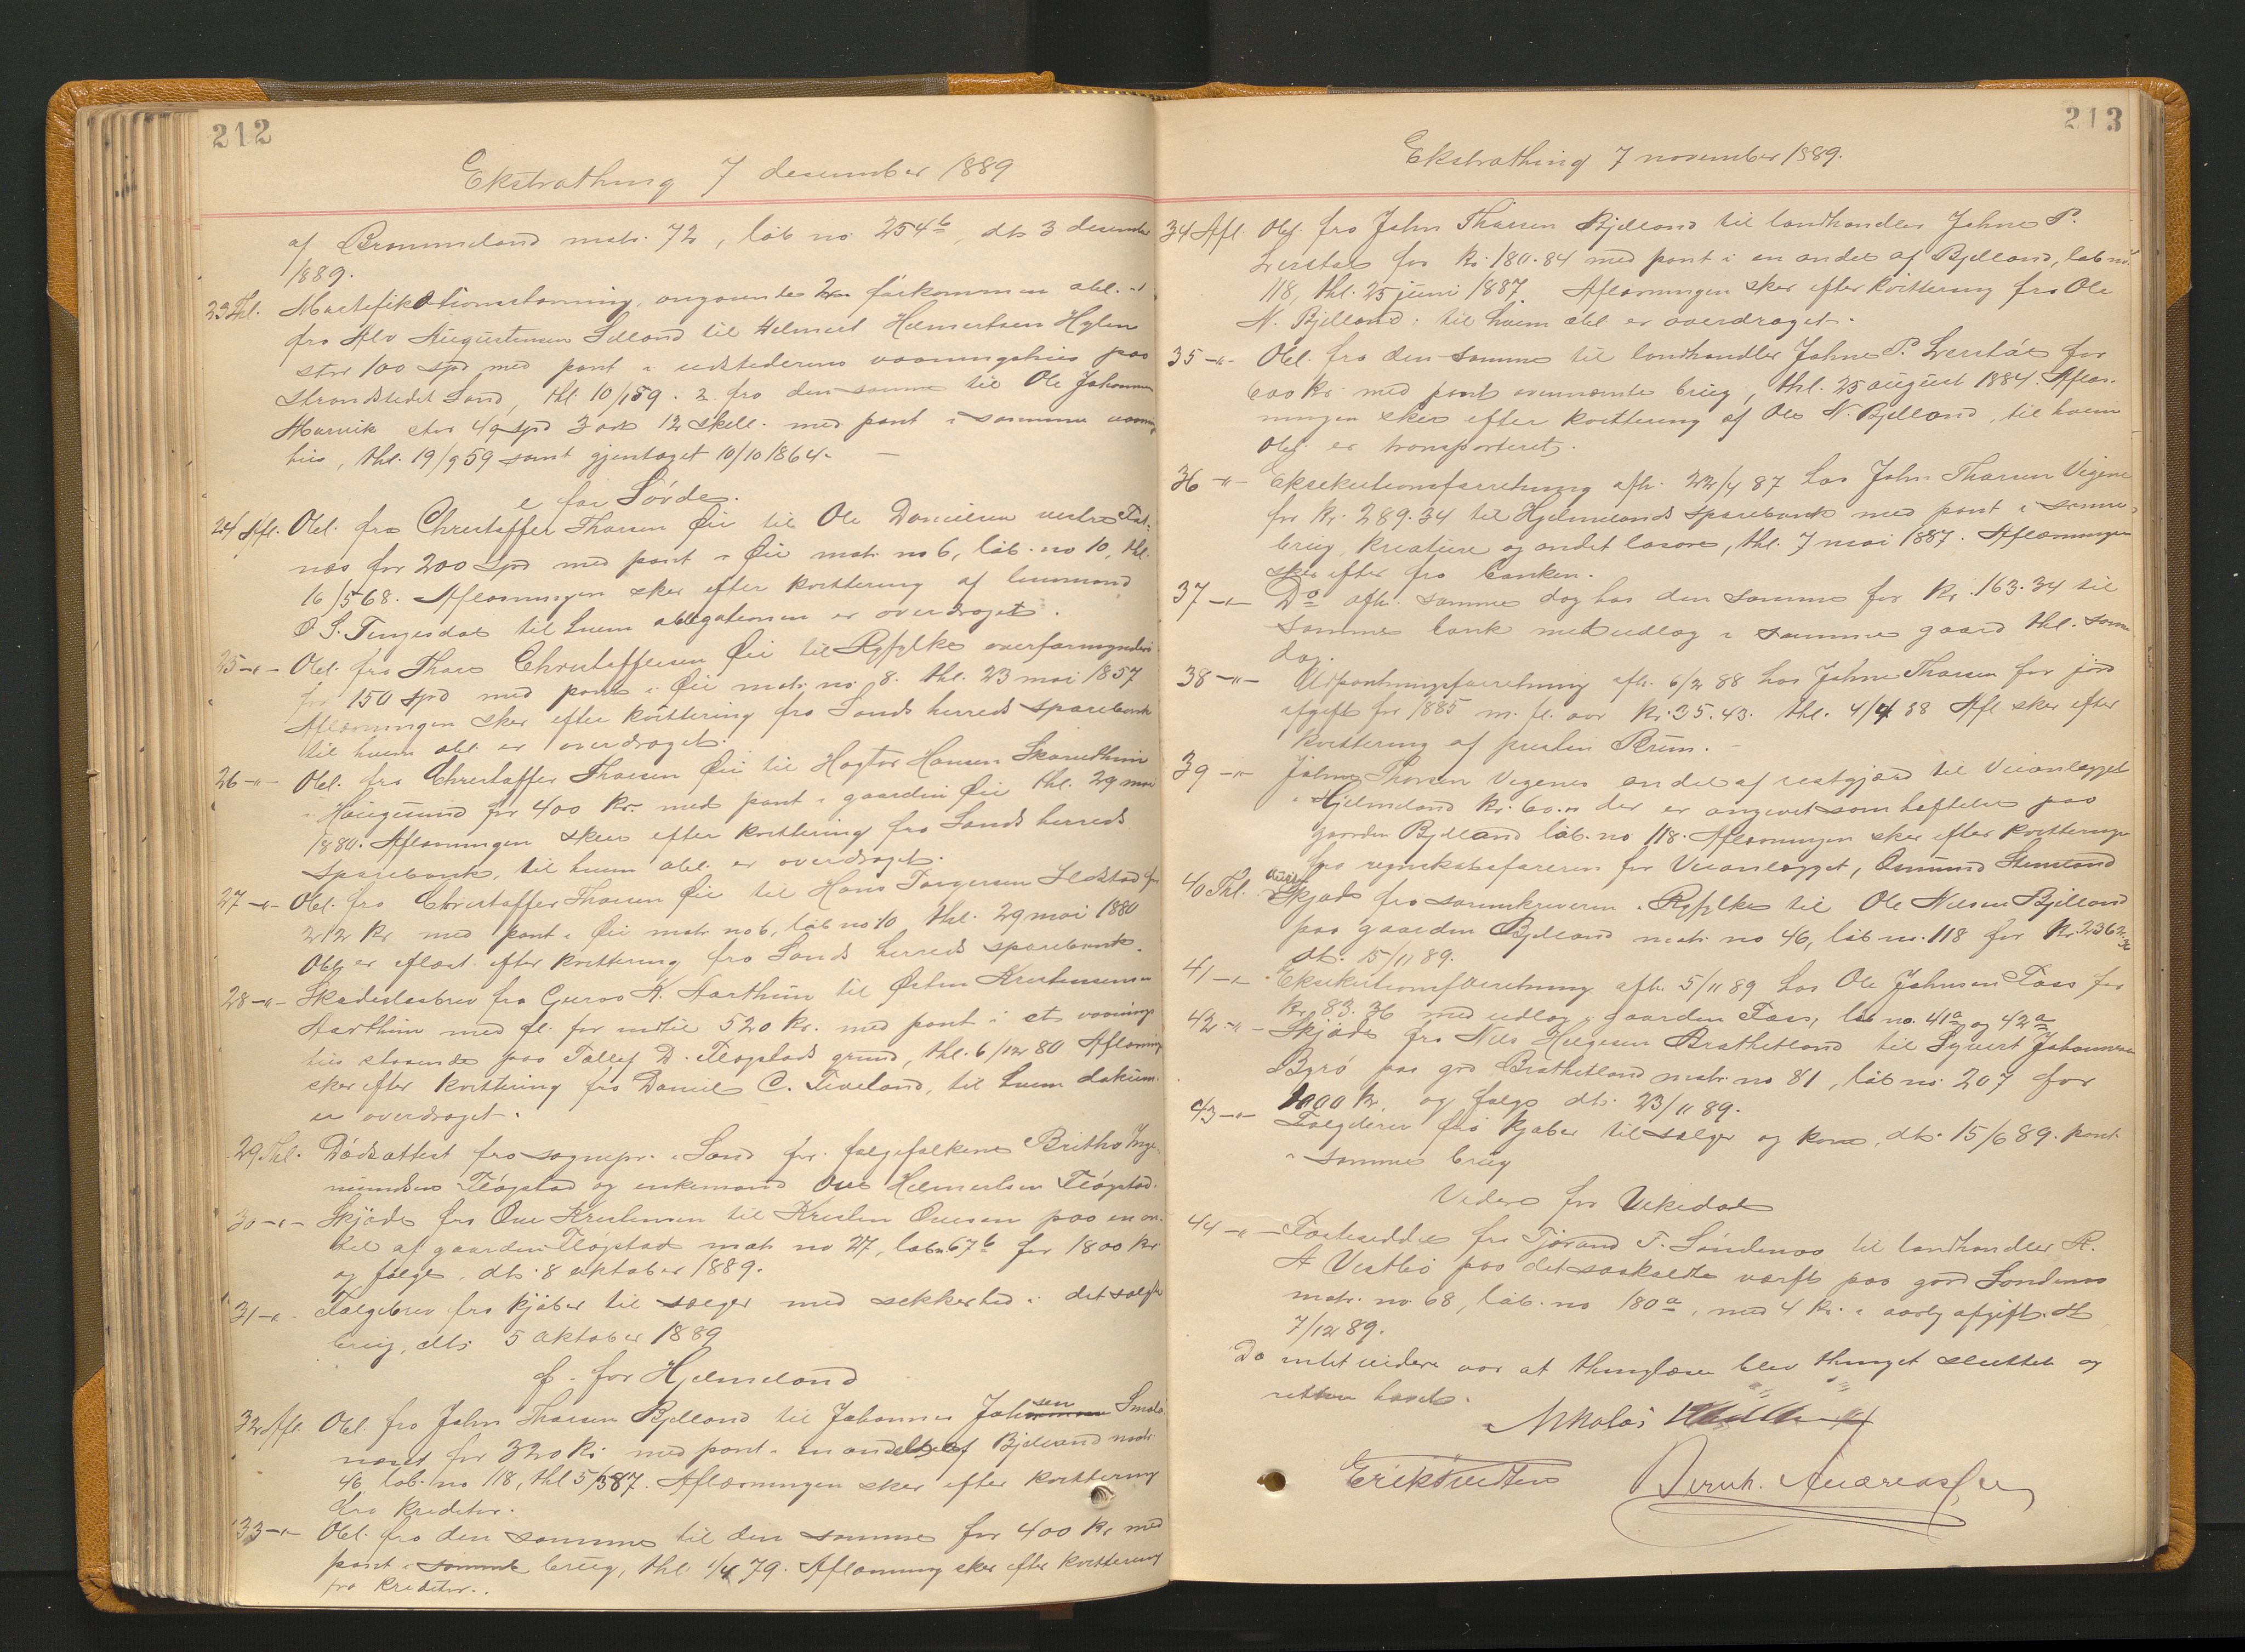 212
Ekstrathing 7 desember 1889
af Brommeland matr. 72, løb no 254b, dt. 3 desember
1889.
23 Thl. Mortifikationsstevning, angaaende 2 forkommen obl.
fra Alv Augustensen Selland til Helmert Helmertsen Hylen
stor 100 spd med pant i udstederens vaaningshus paa
strandstedet Sand, thl. 10/1 59. 2. fra den samme til Ole Johannesen
Marvik stor 49 spd 3 ort 12 skell. med pant i samme vaanings
hus, thl. 19/9 59 samt gjentaget 10/10 1864.
e for Søvde.
24 Afl. Obl. fra Christoffer Thorsen Øie til Ole Danielsen vestre
næs for 200 Spd med pant i Øie matr no 6, løb. no 10, thl.
16/5 68. Aflæsningen sker efter kvittering af lensmand
O S. Tengesdal til hvem obligationen er overdraget.
25 -"- Obl. fra Thore Christoffersen Øie til Ryfylke overformynderi
for 150 Spd med pant i Øie matr. no 8. thl. 23 mai 1857
Aflæsningen sker efter kvittering fra Sands herreds sparebank
til hvem obl. er overdraget.
26 -"- Obl. fra Christoffer Thorsen Øie til Hagtor Hansen
i Haugesund for 400 kr. med pant i gaarden Øie thl. 29 mai
1880. Aflæsningen skeer efter kvittering fra Sands herreds
sparebank, til hvem obl. er overdraget.
27 -"- Obl. fra Christoffer Thorsen Øie til Hans Torgersen Ilstad for
212 kr med pant i Øie matr no 6, løb no 10 thl. 29 mai 1880
Obl er aflæst efter kvittering fra Sands herreds sparebank.
28 -"- Skadesløsbrev fra Guros K. Aarthun til Østen Kristensen
Aarthun med fl. for indtil 520 kr. med pant i et vaanings
hus staaende paa Tollef D. Fløgstads grund, thl. 6/12 80 Aflæsning
sker efter kvittering fra Daniel C. Tveland, til hvem dokum.
er overdraget.
29 Thl. Dødsattest fra sognepr. i Sand for folgefolkene Britha Inge
mundsen Fløgstad og enkemand Ove Helmertsen Fløgstad.
30 -"- Skjøde fra Ove Kristensen til Kristen Ovesen paa en an-
del af gaarden Fløgstad matr no 27, løbn 67b for 1800 kr
og folge, dt. 8 oktober 1889.
31 -"- Folgebrev fra kjøber til sælger med sekkerhed i det solgte
brug, dt. 5 oktober 1889
f. for Hjelmeland
32 Afl. Obl. fra John Thorsen Bjelland til Johannes Johnsen
næset for 320 kr. med pant i en andel af Bjelland matr
46, løb. no 118, thl 5/3 87. Aflæsningen sker efter kvittering
fra kreditor.
33 -"- Obl. fra den samme til den samme for 400 kr med
pant i samme brug, thl. 1/4 79. Aflæsning sker efter kvittering
fra kreditor.
213
Ekstrathing 7 november 1889.
34 Afl. Obl. fra John Thorsen Bjelland til landhandler Johne P.
Leerstøl for kr. 180.84 med pant i en andel af Bjelland, løb no.
118, thl. 25 juni 1887. Aflæsningen sker efter kvittering fra Ole
N. Bjelland, til hvem obl er overdraget.
35 -"- Obl. fra den samme til landhandler Johne P. Leerstøl for
600 kr. med pant ovennævnte brug, thl. 25 august 1884. Aflæs-
ningen sker efter kvittering af Ole N. Bjelland, til hvem
obl. er transporteret.
36 -"- Eksekutionsforretning afh. 22/4 87 hos John Thorsen Vigene
for kr. 289.34 til Hjelmelands sparebank med pant i samme
brug, kreature og andet løsøre, thl. 7 mai 1887. Aflæsningen
sker efter fra banken.
37 -"- Do afh. samme dag hos den samme for kr. 163.34 til
samme bank med udlæg i samme gaard thl. samme
dag.
38 -"- Udpantningsforretning afh. 6/2 88 hos Johne Thorsen for jord
afgift for 1885 m. fl. aar kr. 35.43. thl. 4/4 88 Afl sker efter
kvittering af presten Bruun.
39 -"- Johne Thorsen Vigenes andel af restgjæld til Veianlægget
i Hjelmeland kr. 60.00 der er angivet som heftelse paa
gaarden Bjelland løb. no 118. Aflæsningen sker efter kvittering
fra regnskabsføreren for Veianlægget, Osmund Steinsland
40 Thl. Auks. Skjøde fra sorenskriveren i Ryfylke til Ole Nilsen Bjelland
paa gaarden Bjelland matr. no 46, løb no. 118 for kr. 2362.36
dt. 15/11 89.
41 -"- Eksekutionsforretning afh. 5/11 89 hos Ole Johnsen Foss for
kr. 83.36 med udlæg i gaarden Foss, løb no. 41a og 42a
42 -"- Skjøde fra Nils Helgesen Brathetland til Syvert Johannesen
Byrø paa grd Brathetland matr. no 81, løb no. 207 for
1000 kr. og folge dt. 23/11 89.
43 -"- Folgebrev fra kjøber til sælger og kone, dt. 15/6 89. pant
i samme brug
Videre for Vikedal
44 -"- Fæsteseddel fra Tjøran T. Søndenaa til landhandler A.
A Vestbø paa det saakaldte værft paa gard Søndenaa
matr. no 68, løb. no 180a, med 4 kr. i aarlig afgift. dt
7/12 89.
Da intet videre var at thinglæse blev thinget sluttet og
retten hævet.
Nikolai
Erik Tveiten Bernh. Andreassen